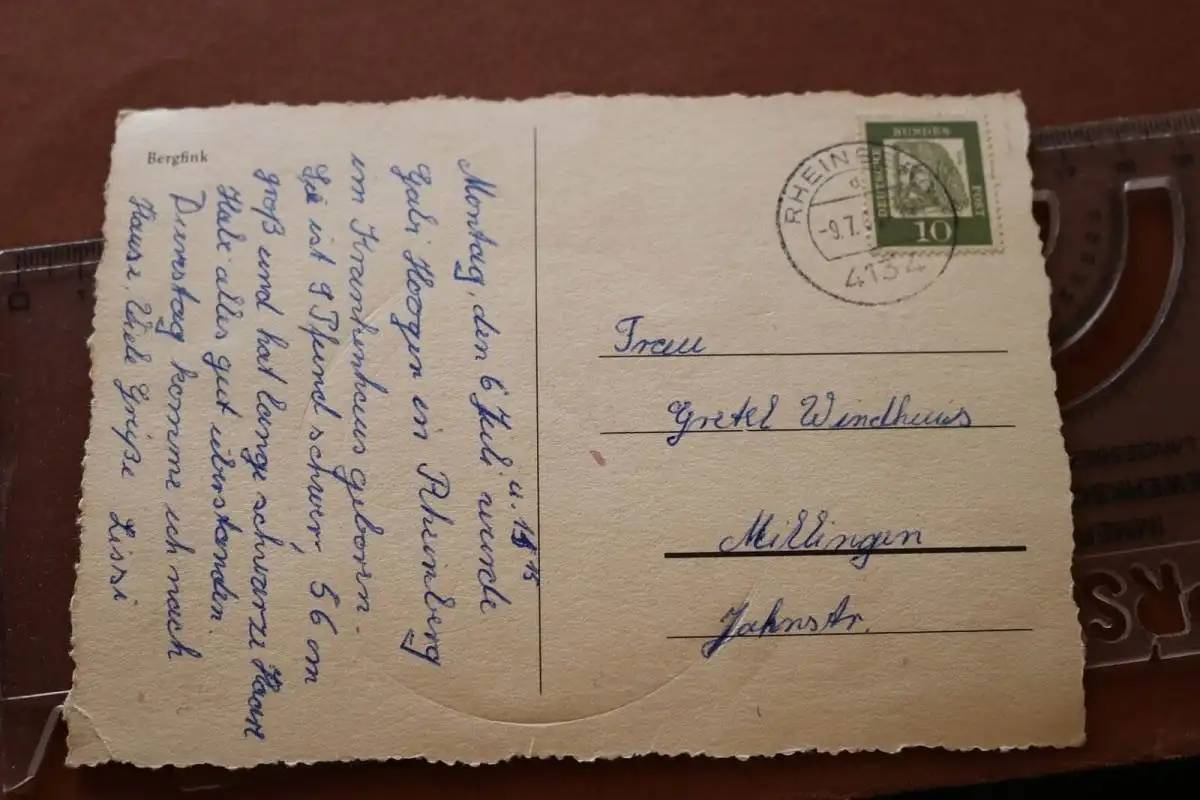 Bergfink
Montag, den 6 Juli wurde
u. 15 15
Gabi Hoogen in Rheinberg
im Krankenhaus geboren.
Sie ist 9 Pfund schwer, 56 cm
groß und hat lange schwarze Haare
Habe alles gut überstanden.
Dienstag komme ich nach
Hause. Viele Grüße Lissi
RHEINB
-9.7.
4134
DEUTSCHE
BUNDES
POST
10
Frau
Gretel Windhuis
Millingen
Jahnstr.